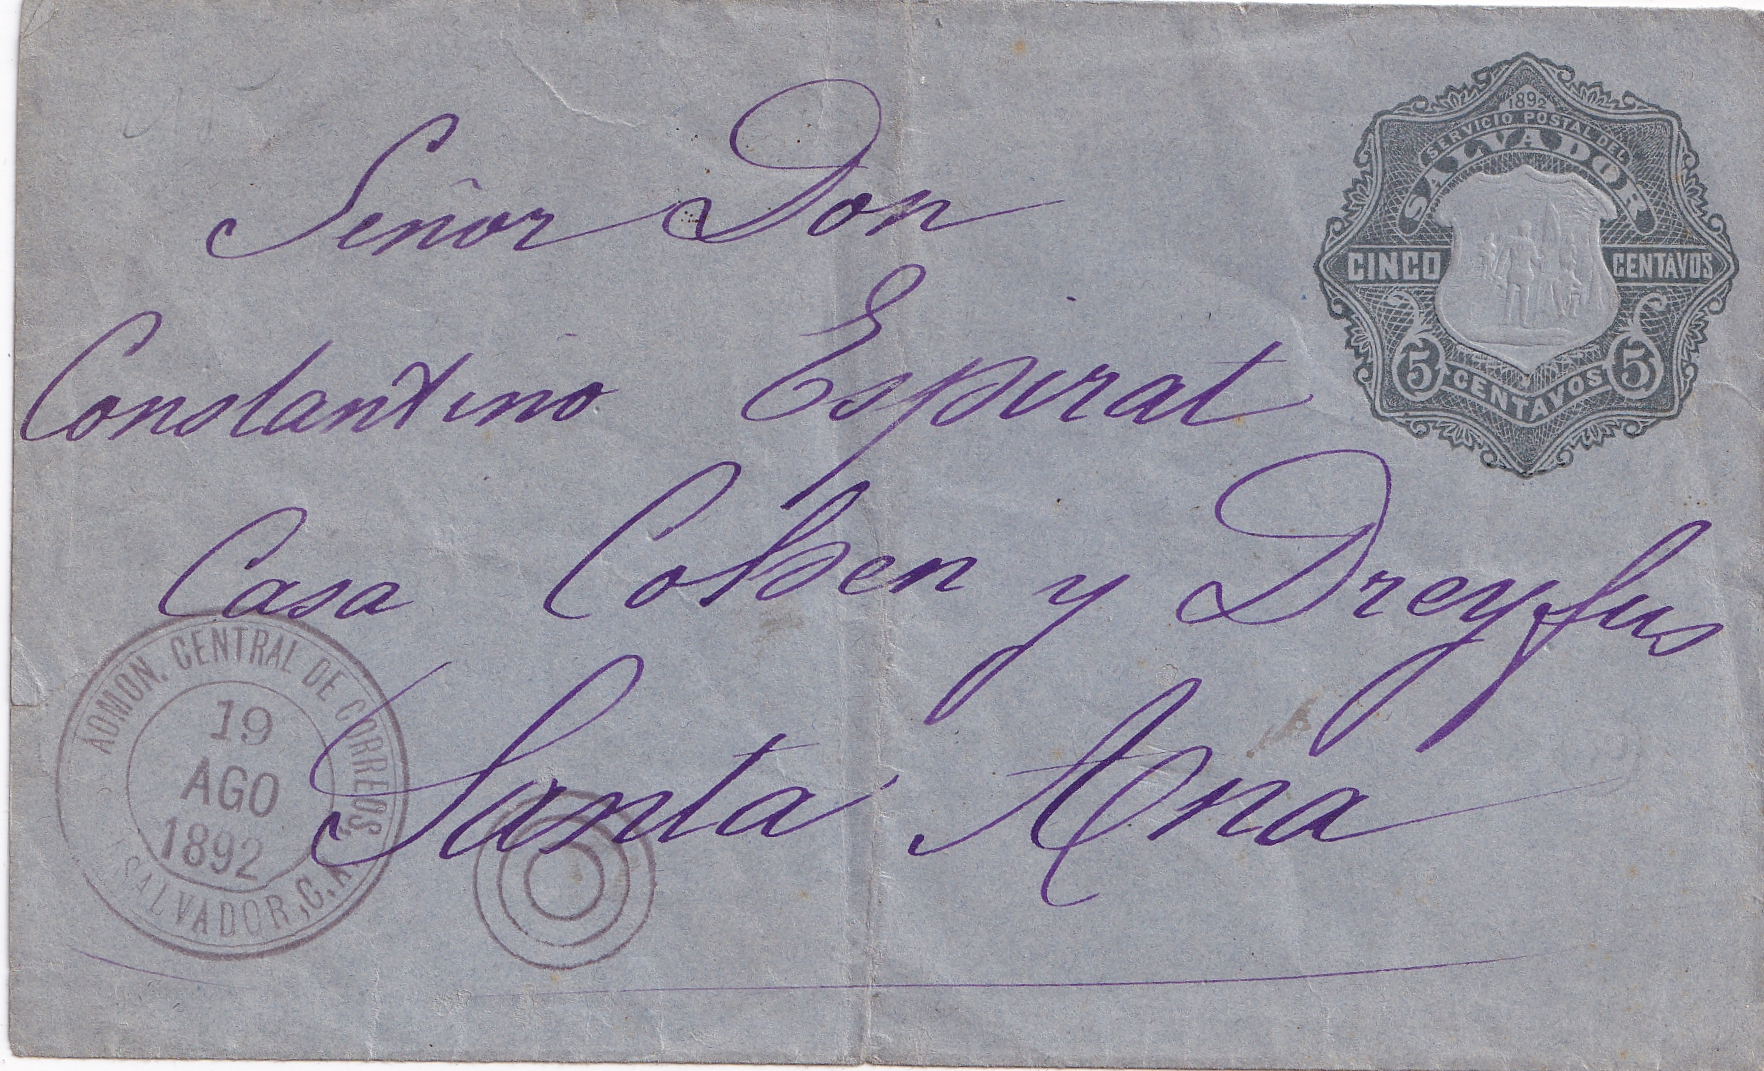 1892
SERVICIO POSTAL DEL
SALVADOR
CINCO CENTAVOS
5 CENTAVOS 5
Señor Don
Constantino Espirat
Casa Cohen y Dreyfus
Santa Ana
ADMÓN. CENTRAL DE CORREOS.
19
AGO
1892
SALVADOR, C.A.